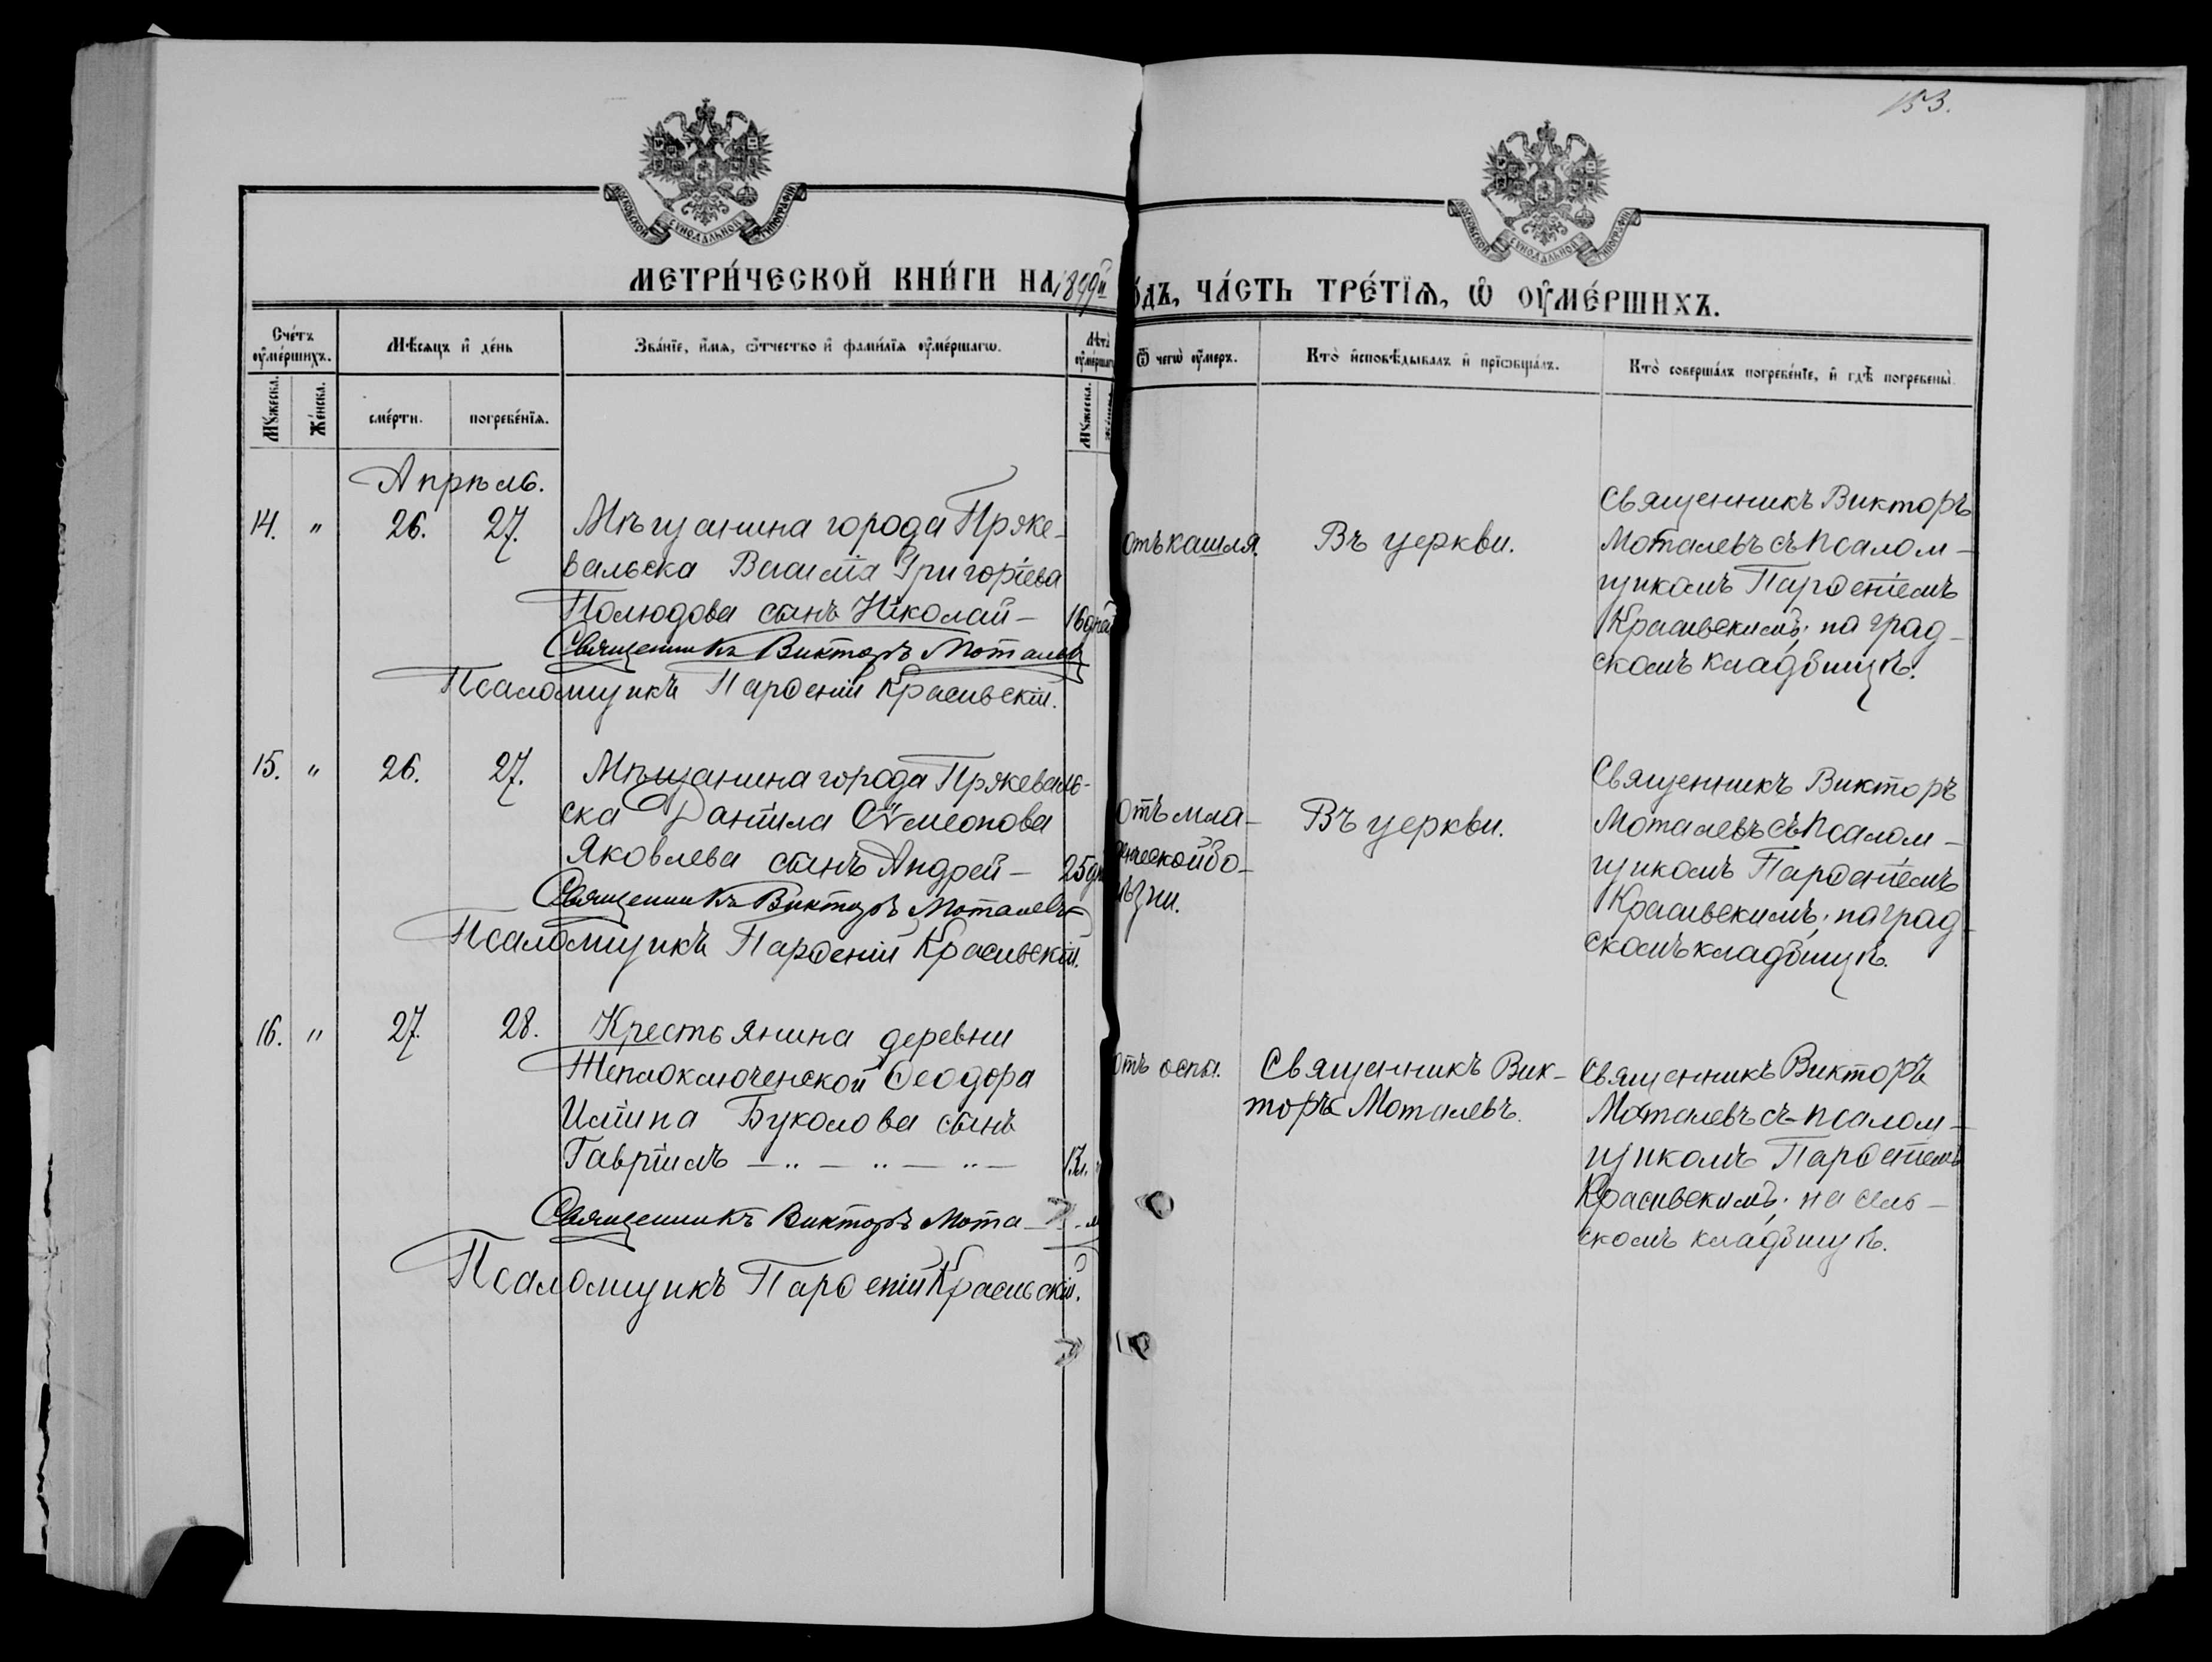 153.
МОСКОВСКОЙ СѴНОДАЛЬНОЙ ТИПОГРАФІИ
МОСКОВСКОЙ СѴНОДАЛЬНОЙ ТИПОГРАФІИ
МЕТРИ́ЧЕСКОЙ КНИ́ГИ НА 1899й
ѻ́дъ, ЧА́СТЬ ТРЕ́ТЇѦ, Ѽ ОУ҆МЕ́РШИХЪ.
Сче́тъ оу҆ме́ршихъ.
Мꙋ́жеска.
Же́нска.
Мѣ́сѧцъ и҆ де́нь
сме́рти.
погребе́нїѧ.
Зва́нїе, и҆́мѧ, ѻ҆́тчество и҆ фами́лїѧ оу҆ме́ршагѡ.
Лѣ́та̀ оу҆ме́ршагѡ
Мꙋ́жеска.
Ѿ чегѡ̀ оу҆́меръ.
Кто̀ и҆сповѣ́дывалъ и҆ прїѡбща́лъ.
Кто̀ соверша́лъ погребе́нїе, и҆ гдѣ̀ погребены̀.
Апрѣль.
14. " 26. 27.
Мѣщанина города Прже-
вальска Василія Григоріева
Полюдова сынъ Николай – 16 дней
Священникъ Викторъ Моталевъ
Псаломщикъ Парѳеній Красивскій.
отъ кашля.
Въ церкви.
Священникъ Викторъ
Моталевъ съ псалом-
щикомъ Парѳеніемъ
Красивскимъ; на град-
скомъ кладбищѣ.
15. " 26. 27.
Мѣщанина города Пржеваль-
ска Даніила Сѵмеонова
Яковлева сынъ Андрей – 25 дн
Священникъ Викторъ Моталевъ
Псаломщикъ Парѳеній Красивскій.
отъ мла-
денческой бо-
лѣзни.
Въ церкви.
Священникъ Викторъ
Моталевъ съ псалом-
щикомъ Парѳеніемъ
Красивскимъ; на град-
скомъ кладбищѣ.
16. " 27. 28.
Крестьянина деревни
Теплоключенской Ѳеодора
Иліина Буколова сынъ
Гавріилъ – " – " – " –
Священникъ Викторъ Мота
Псаломщикъ Парѳеній Красивскій.
отъ оспы.
Священникъ Вик-
торъ Моталевъ.
Священникъ Викторъ
Моталевъ съ псалом-
щикомъ Парѳеніемъ
Красивскимъ; на сель-
скомъ кладбищѣ.